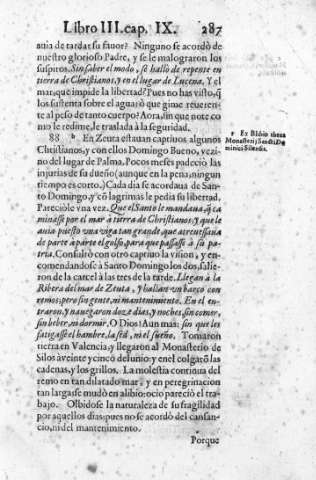 Libro III. cap. IX. 287
auia de tardar su fauor? Ninguno se acordò de
nuestro glorioso Padre, y se le malograron los
suspiros. Sin saber el modo, se hallò de repente en
tierra de Christianos, y en el lugar de Lucena. Y el
mar, que impide la libertad? Pues no has visto, q̃
los sustenta sobre el agua? ò què gime reuerente
al peso de tanto cuerpo? Aora, sin que note co
mo le redime, le traslada à la seguridad.
88 b En Zeuta estauan captiuos algunos
Christianos, y con ellos Domingo Bueno, vezi-
no del lugar de Palma. Pocos meses padeciò las
injurias de su dueño (aunque en la pena, ningun
tiempo es corto.) Cada dia se acordaua de San-
to Domingo, y cõ lagrimas le pedia su libertad.
Pareciòle vna vez. Que el Santo le mandaua, q̃ ca
minasse por el mar à tierra de Christianos, y que le
auia puesto vna viga tan grande, que atrauessaua
de parte à parte el golfo, para que passasse à su pa-
tria. Consultò con otro captiuo la vision, y en-
comendandose à Santo Domingo los dos, salie-
ron de la carcel à las tres de la tarde. Llegan à la
Ribera del mar de Zeuta, y hallan vn barco con
remos, pero sin gente, ni mantenimiento. En el en-
traron, y nauegaron doze dias, y noches, sin comer,
sin beber, ni dormir. O Dios! Aun mas: sin que les
fatigasse el hambre, la sed, ni el sueño. Tomaron
tierra en Valencia, y llegaron al Monasterio de
Silos à veinte y cinco de Iunio, y en èl colgarõ las
cadenas, y los grillos. La molestia continua del
remo en tan dilatado mar, y en peregrinacion
tan larga se mudò en aliuio: ocio pareciò el tra-
bajo. Olbidose la naturaleza de su fragilidad
por aquellos dias; pues no se acordò del cansan-
cio, ni del mantenimiento.
Porque
Ex Biblio theca
Monasterij Sancti Do
minici Silensis.